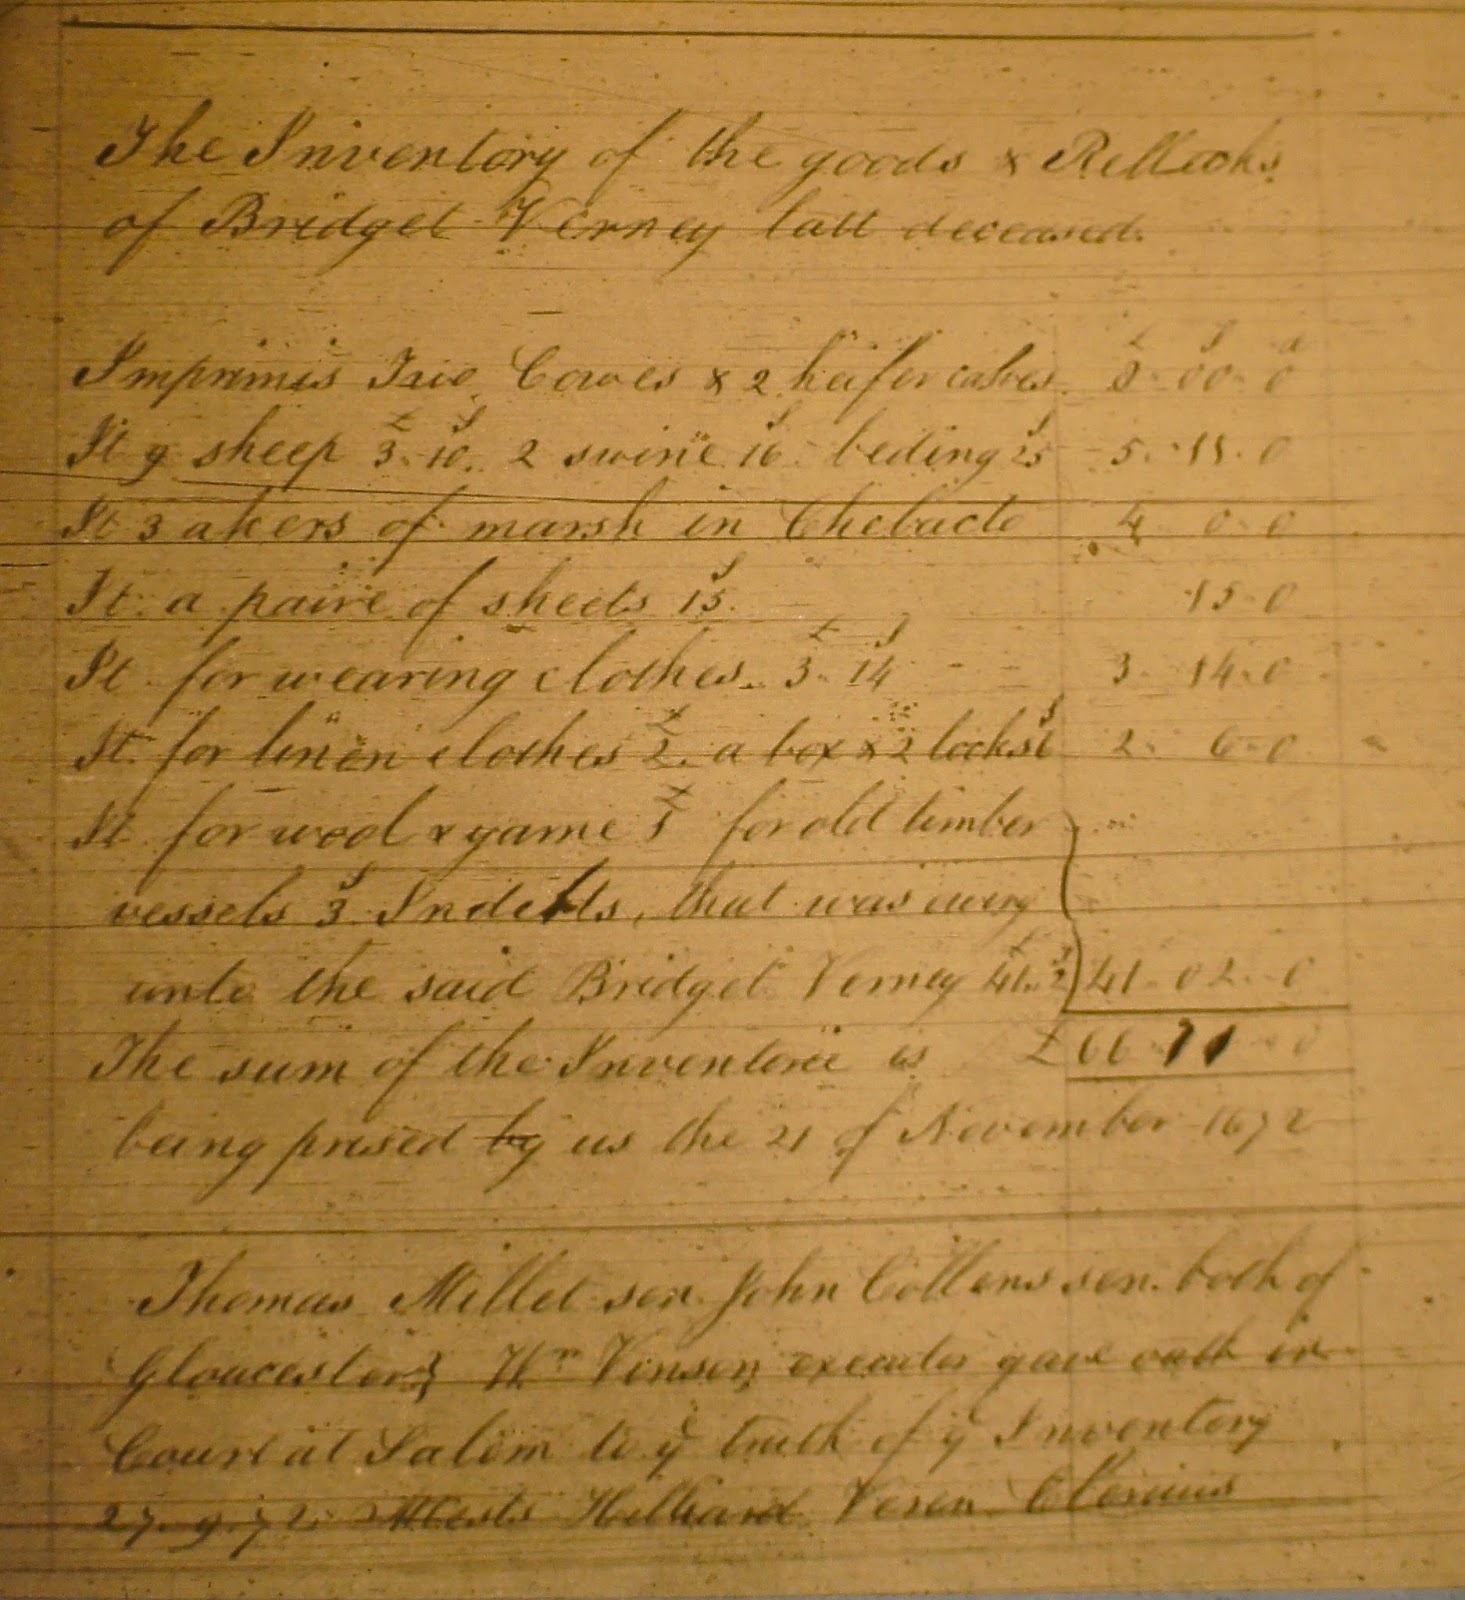 The Inventory of the goods & Rellecks
of Bridget Verney latt deceased.
£ s d
Imprimis Two Cowes & 2 heifer calves 8 00 0
It 9 sheep £3. 10s. 2 swine 16s beding 25s 5. 11. 0
It 3 akers of marsh in Chebacto 4 0 0
It. a paire of sheets 15s. 15 0
It for wearing clothes. £3. 14s - - 3. 14. 0
It. for linen clothes £2. a box & 2 locks 6s 2. 6. 0
It for wool & yarne £1 for old timber
vessels 3s Indebts, that was owing
unto the said Bridget Verney £41. 2s 41. 02. 0
The sum of the Inventorie is £66 0
being prised by us the 21 of November 1672
Thomas Millet sen. John Collens sen. both of
Gloucester; Wm Vinson executor gave oath in
Court at Salem to ye truth of ye Inventory
27. 9. 72. Attests Hilliard Veren Clericus